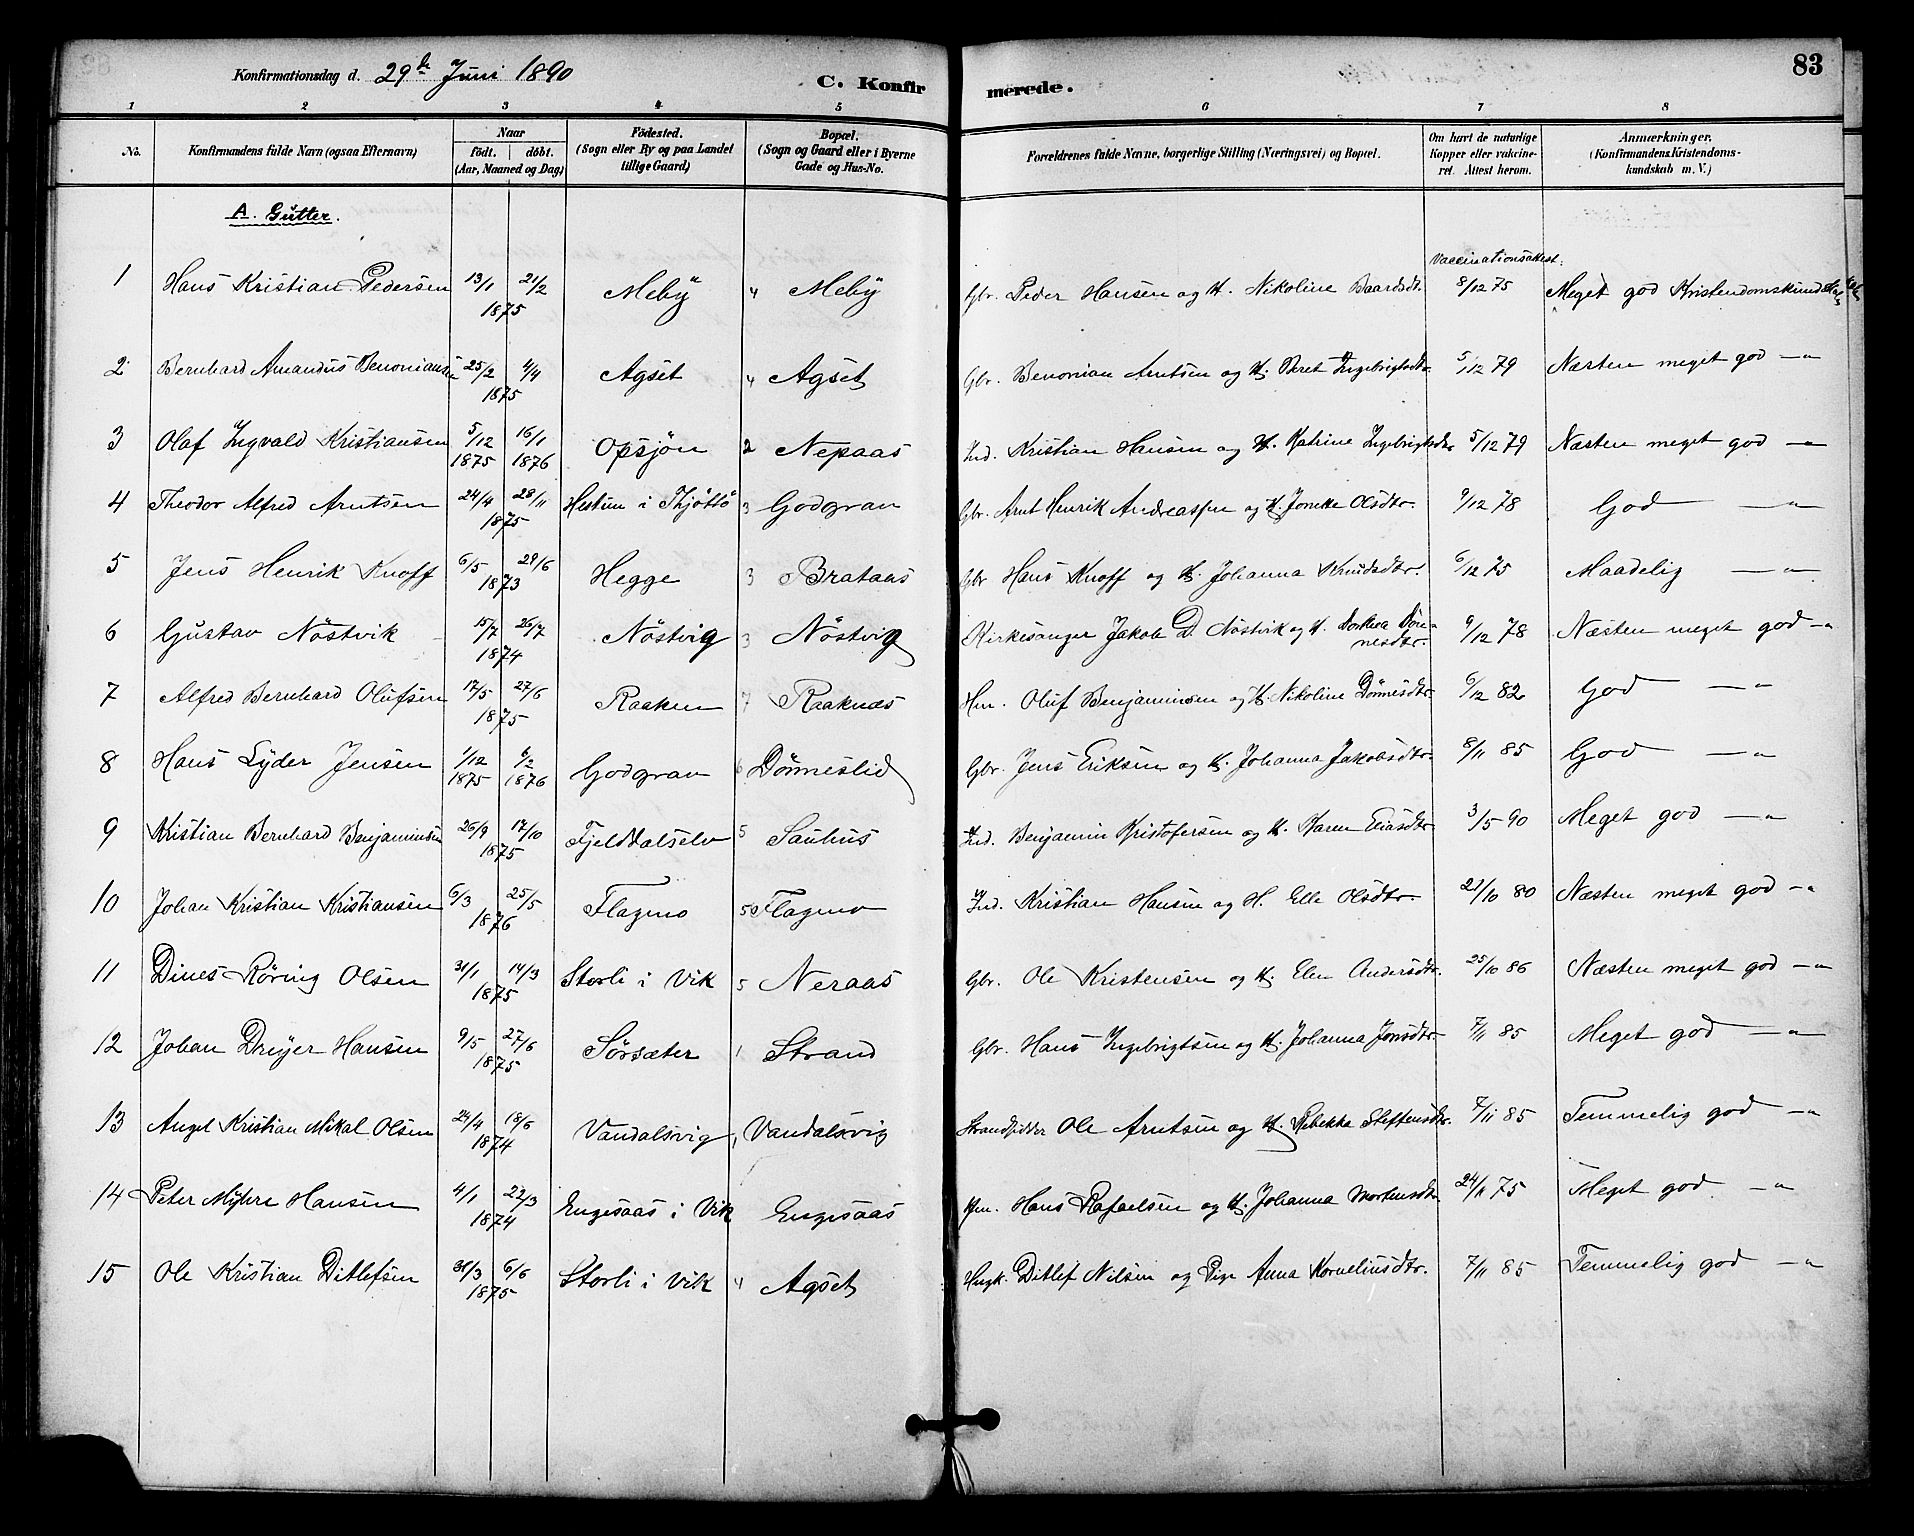 83
Konfirmationsdag d. 29de Juni 1890
C. Konfirmerede.
1 2 3 4 5 6 7 8
No. Konfirmandens fulde Navn (ogsaa Efternavn) Naar født. døbt. (Aar, Maaned og Dag) Fødested. (Sogn eller By og paa Landet tillige Gaard) Bopæl. (Sogn og Gaard eller i Byerne Gade og Hus-No. Forældrenes fulde Navne, borgerlige Stilling (Næringsvei) og Bopæl. Om havt de naturlige Kopper eller vakcineret. Attest herom. Anmærkninger. (Konfirmandens Kristendomskundskab m. V.)
A. Gutter.
Vaccinationsattest:
1 Hans Kristian Pedersen 13/1 21/2 1875 Meby 4 Meby Gbr. Peder Hansen og H. Nikoline Baardsdtr. 8/12 75 Meget god Kristendomskundskab
2 Bernhard Amandus Benoniansen 25/2 4/4 1875 Agset 4 Agset Gbr. Benonian Arntsen og H. Beret Ingebrigtsdtr. 5/12 79 Næsten meget god — "
3 Olaf Ingvald Kristiansen 5/12 1875 16/1 1876 Opsjön 2 Nepaas Ind. Kristian Hansen og H. Katrine Ingebrigtsdtr. 5/12 79 Næsten meget god — "
4 Theodor Alfred Arntsen 24/4 28/11 1875 Hestun i Thjöttö 3 Godgrav Gbr. Arnt Henrik Andreassen og H. Joneke Olsdtr. 9/12 78 God — "
5 Jens Henrik Knoff 6/5 29/6 1873 Hegge 3 Brataas Gbr. Hans Knoff og H. Johanna Knudsdtr. 6/12 75 Maadelig — "
6 Gustav Nöstvik 15/7 26/7 1874 Nöstvig 3 Nöstvig Kirkesanger Jakob D. Nöstvik og H. Dorthea Dönnesdtr. 9/12 78 Næsten meget god — "
7 Alfred Bernhard Olufsen 17/5 27/6 1875 Raaknes 7 Raaknæs Hm. Oluf Benjaminsen og H. Nikoline Dönnesdtr. 6/12 82 God — "
8 Hans Lyder Jensen 1/12 1875 6/2 1876 Godgrav 6 Dönneslid Gbr. Jens Eriksen og H. Johanna Jakobsdtr. 8/11 85 God — "
9 Kristian Bernhard Benjaminsen 26/9 17/10 1875 Fjelddalselv 5 Sauhus Ind. Benjamin Kristofersen og H. Karen Eliasdtr. 3/5 90 Meget god — "
10 Johan Kristian Kristiansen 6/3 25/5 1876 Flagmo 5 Flagmo Ind. Kristian Hansen og H. Elle Olsdtr. 21/10 80 Næsten meget god — "
11 Dines Röring Olsen 31/1 14/3 1875 Storli i Vik 5 Neraas Gbr. Ole Kristensen og H. Elen Andersdtr. 25/10 86 Næsten meget god — "
12 Johan Dreyer Hansen 9/5 27/6 1875 Sörsæter 1 Strand Gbr. Hans Ingebrigtsen og H. Johanna Jonsdtr. 7/11 85 Meget god — "
13 Angel Kristian Mikal Olsen 24/4 18/6 1874 Vandalsvig 1 Vandalsvig Strandsidder Ole Arntsen og H. Rebekka Steffensdtr. 7/11 85 Temmelig god — "
14 Peter Myhre Hansen 4/1 22/3 1874 Engesaas i Vik Engesaas Hm. Hans Rafaelsen og H. Johanna Mortensdtr. 24/11 75 Meget god — "
15 Ole Kristian Ditlefsen 31/3 6/6 1875 Storli i Vik 4 Agset Ungk. Ditlef Nilsen og Pige Anna Korneliusdtr. 7/11 85 Temmelig god — "